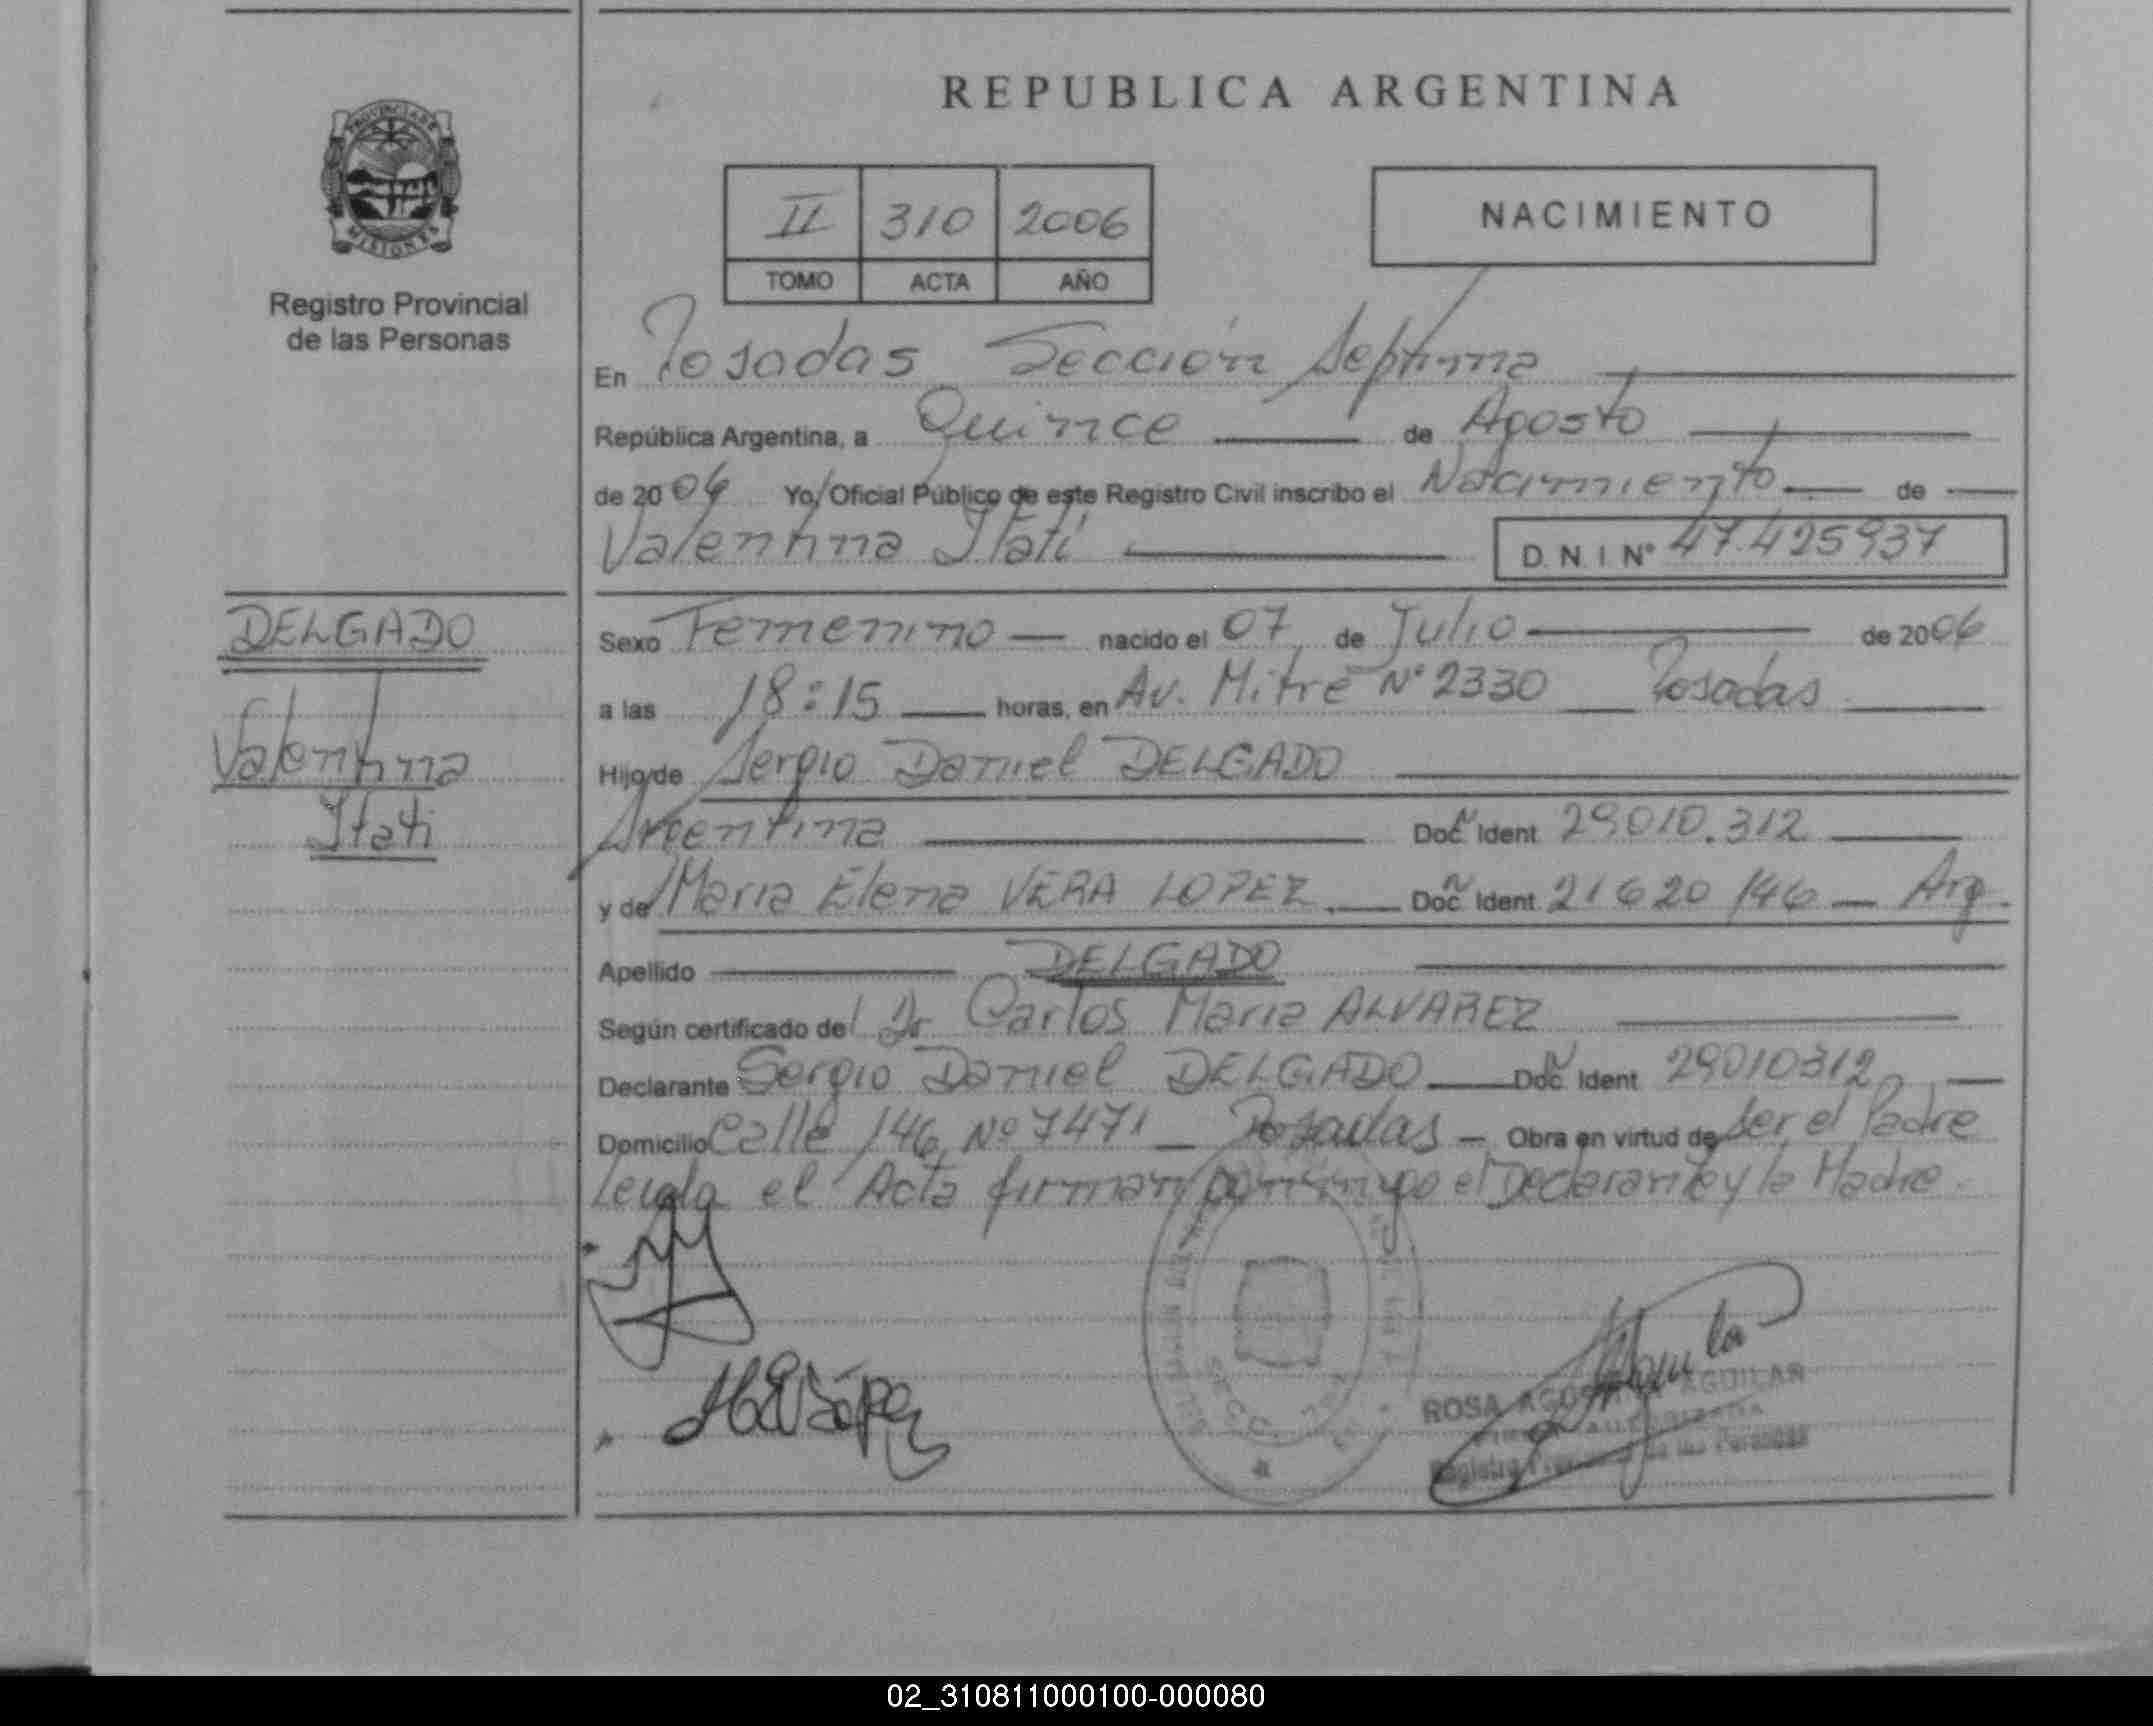 REPUBLICA ARGENTINA
PROVINCIA DE
MISIONES
Registro Provincial
de las Personas
II 310 2006
TOMO ACTA AÑO
NACIMIENTO
En Posadas Sección Septima
República Argentina, a Quince de Agosto
de 2006 Yo, Oficial Público de este Registro Civil inscribo el Nacimiento de
Valentina Itatí D.N.I Nº 47.425937
DELGADO
Valentina
Itati
Sexo Femenino nacido el 07 de Julio de 2006
a las 18:15 horas, en Av. Mitre Nº 2330 Posadas
Hijo de Sergio Daniel DELGADO
Argentina Doc Ident 29010.312
y de Maria Elena VERA LOPEZ Doc Ident 21620146 Arg.
Apellido DELGADO
Según certificado del Dr Carlos Maria ALVAREZ
Declarante Sergio Daniel DELGADO Doc Ident 29010312
Domicilio Calle 146 Nº 7471 Posadas Obra en virtud de Ser el Padre
Leida el Acta firman conmigo el Declarante y la Madre.
SECC.
ROSA AGUILAR
Registro de las Personas
02_310811000100-000080